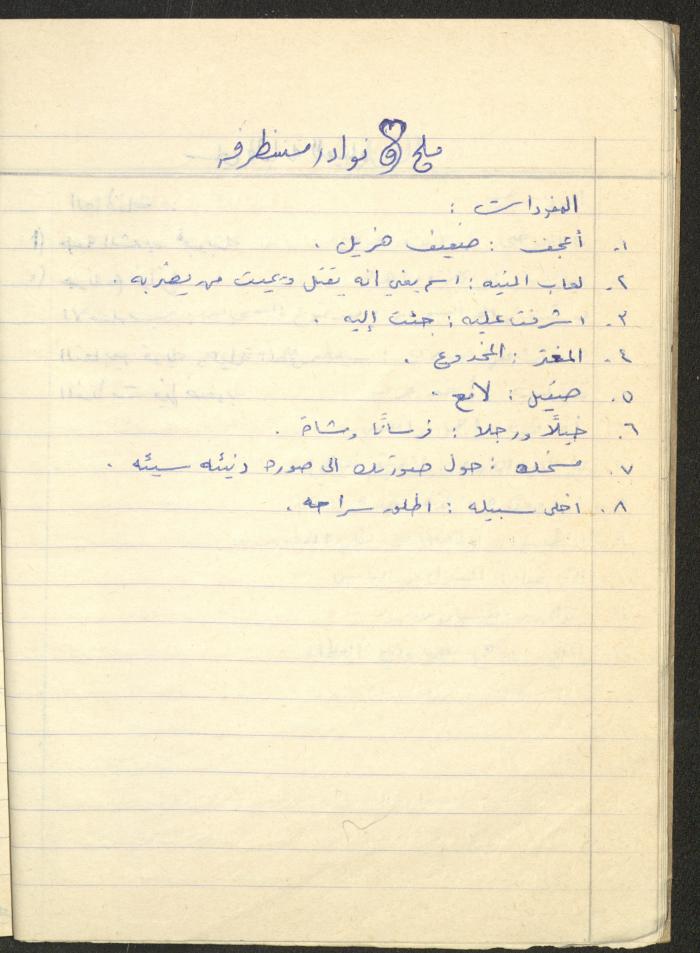 ملح و نوادر مستظرفه
المفردات :
١. أعجف : ضعيف هزيل .
٢. لعاب المنيه : اسم يعني انه يقتل ويميت من يضربه
٣. اشرفت عليه : جئت إليه .
٤. المغتر : المخدوع .
٥. صقيل : لامع .
٦. خيلًا ورجلا : فرسانًا ومشاة .
٧. مسخك : حول صورتك الى صورة دنيئه سيئه .
٨. اخلى سبيله : اطلق سراحه .